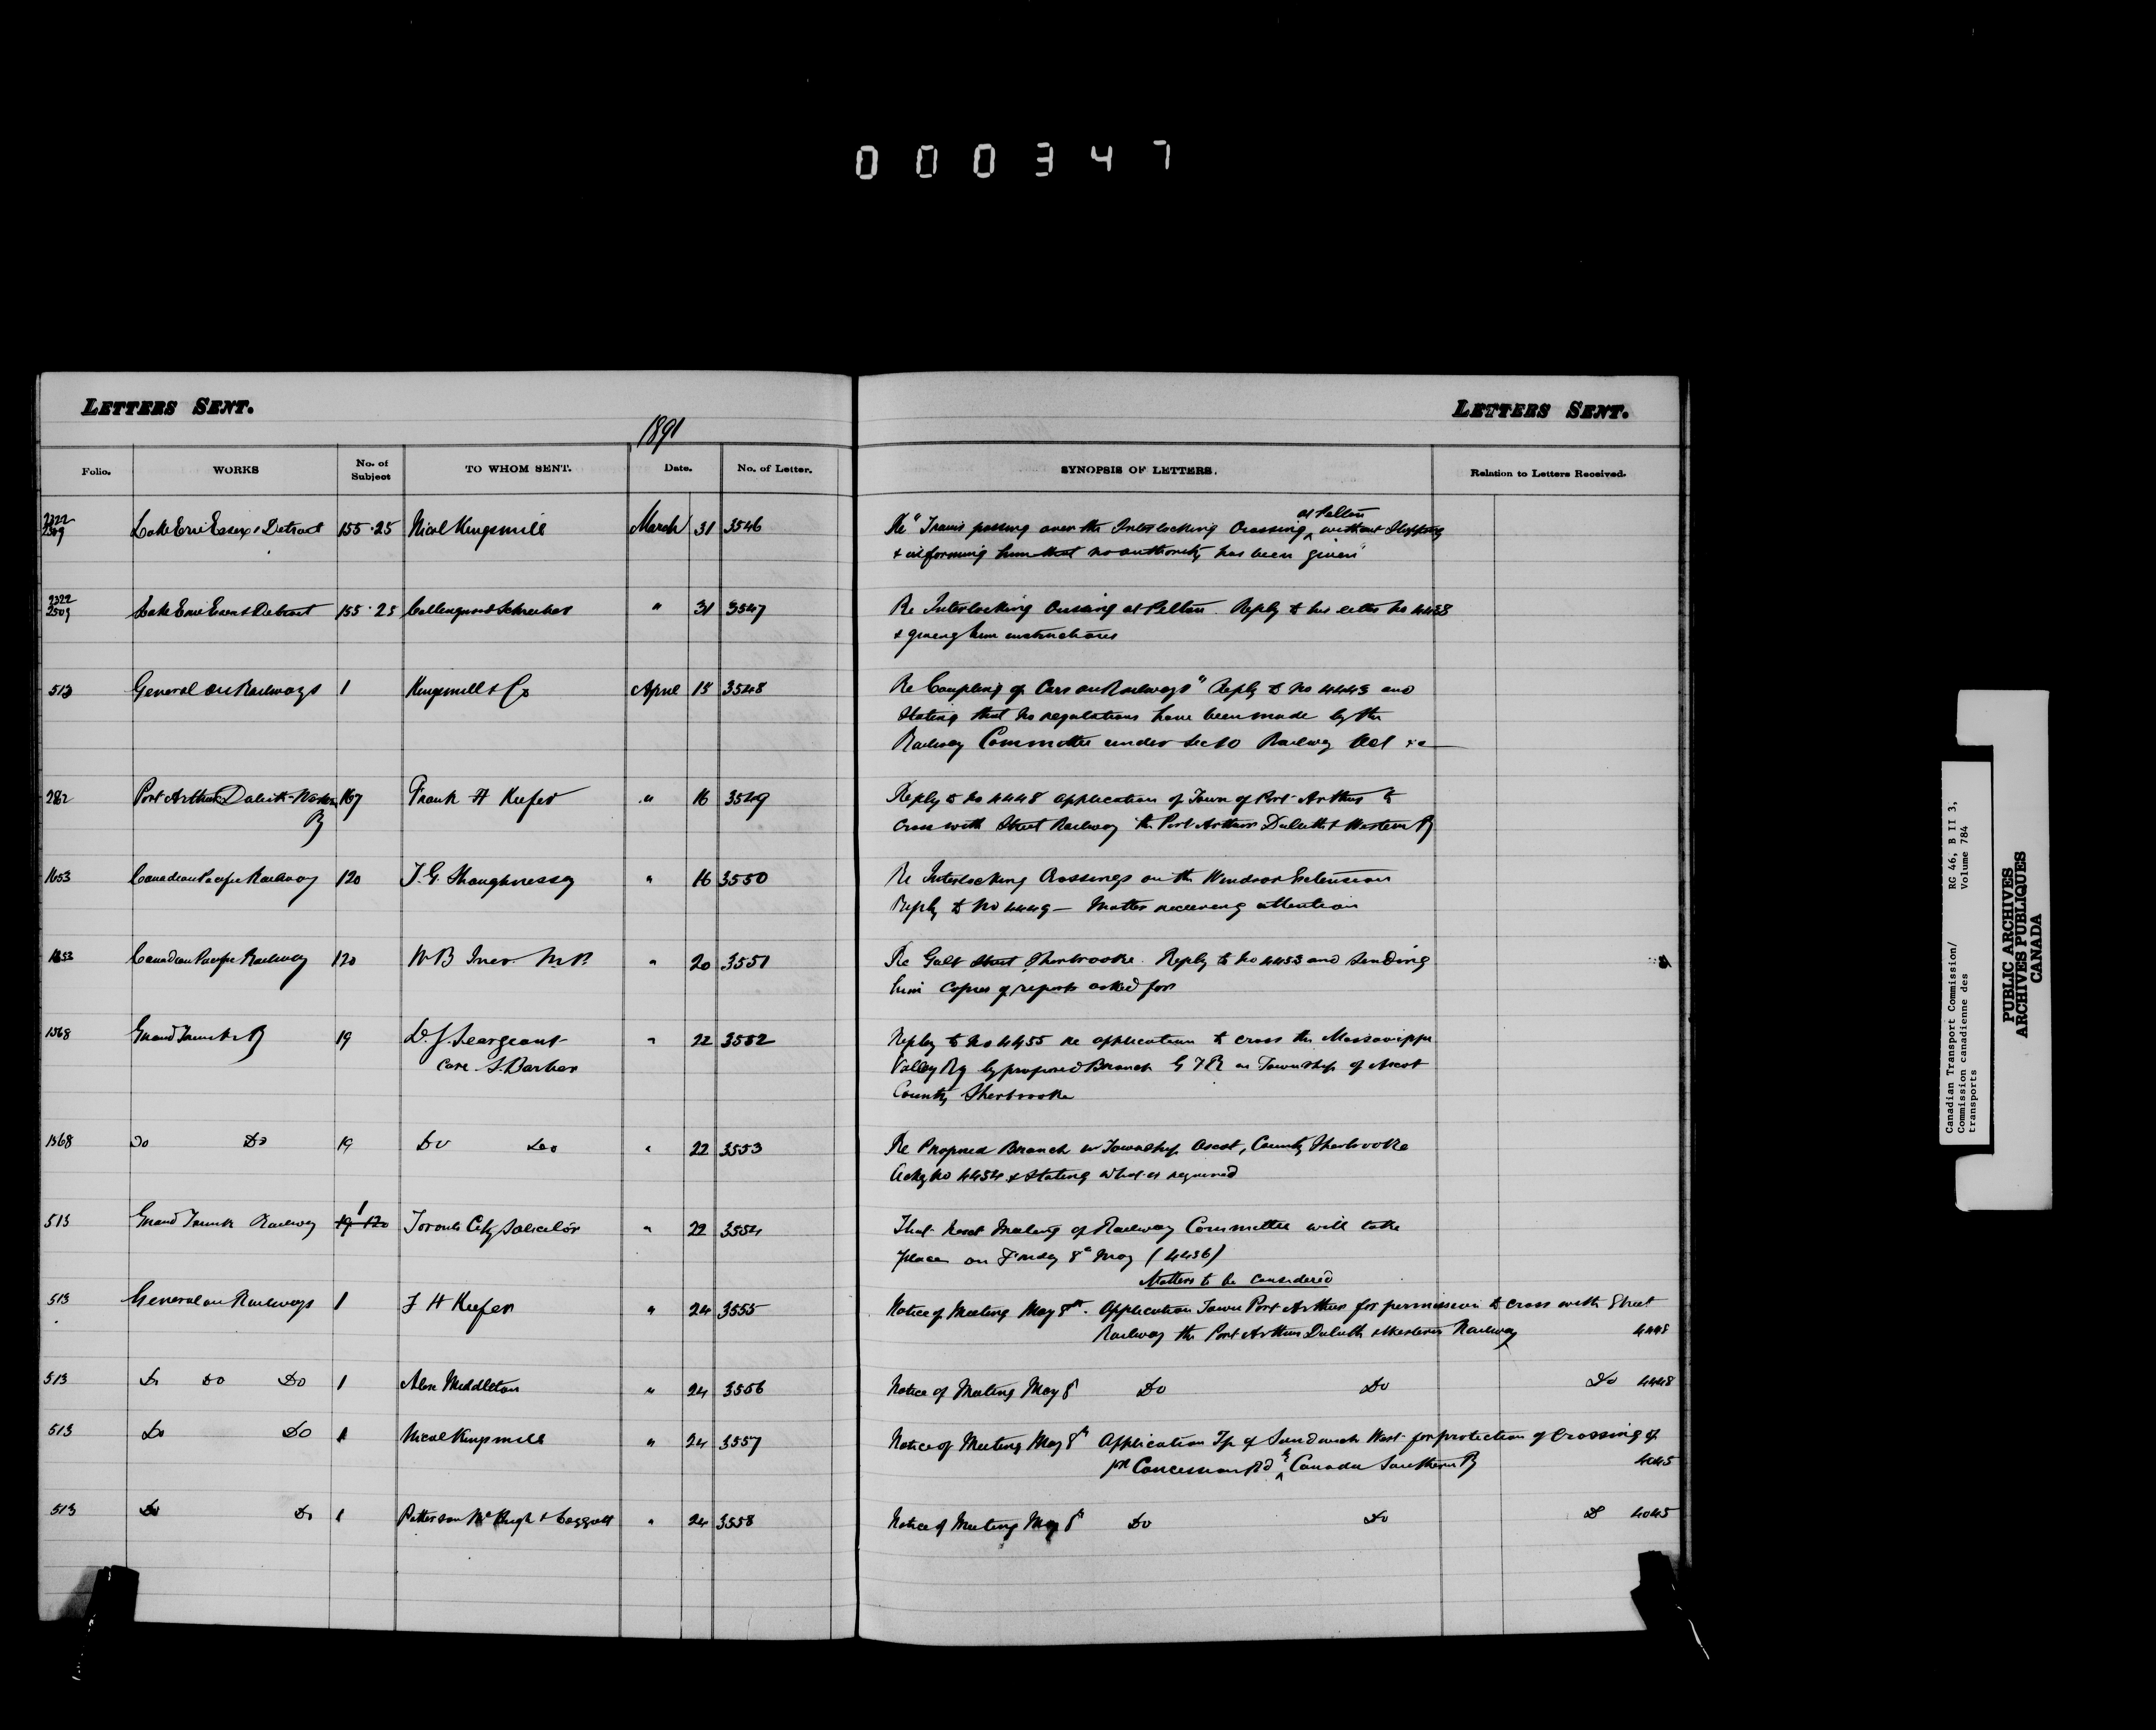 000347
LETTERS SENT.
LETTERS SENT.
1891
Folio. WORKS No. of Subject TO WHOM SENT. Date. No. of Letter. SYNOPSIS OF LETTERS. Relation to Letters Received.
2322
2509 Lake Erie Essex & Detroit 155·25 Nicol Kingsmill March 31 3546 Re "Trains passing over the Interlocking Crossing at Pelton without Stopping
& informing him that no authority has been given"
2322
2509 Lake Erie Essex & Detroit 155·25 Collingwood Schreiber " 31 3547 Re Interlocking Crossing at Pelton. Reply to his letter No 4438
& giving him instructions
513 General on Railways 1 Kingsmill & Co April 15 3548 Re Coupling of Cars on Railways" Reply to No 4443 and
Stating that no regulations have been made by the
Railway Committee under sec 10 Railway Act &c
282 Port Arthur Duluth & Western Ry 167 Frank H Keefer " 16 3549 Reply to No 4448 application of Town of Port Arthur to
cross with Street Railway the Port Arthur Duluth & Western Ry
1653 Canadian Pacific Railway 120 T.G. Shaughnessy " 16 3550 Re Interlocking Crossings on the Windsor Extension
Reply to No 4449 – Matter receiving attention
1653 Canadian Pacific Railway 120 W B Ives M.P. " 20 3551 Re Galt Street Sherbrooke. Reply to No 4453 and Sending
him copies of reports asked for
1368 Grand Trunk Ry 19 L.J. Seargeant " 22 3552 Reply to No 4455 re application to cross the Massawippi
care S. Barker Valley Ry by proposed Branch G T R in Township of Ascot
County Sherbrooke
1368 Do Do 19 Do Do " 22 3553 Re Proposed Branch in Township Ascot, County Sherbrooke
Ackg No 4454 & Stating what is required
513 Grand Trunk Railway 1 19 120 Toronto City Solicitor " 22 3554 That next Meeting of Railway Committee will take
place on Friday 8th May (4436)
Matters to be considered
513 General on Railways 1 F H Keefer " 24 3555 Notice of Meeting May 8th. Application Town Port Arthur for permission to cross with Street
Railway the Port Arthur Duluth & Western Railway 4448
513 Do Do Do 1 Alex Middleton " 24 3556 Notice of Meeting May 8 Do Do Do 4448
513 Do Do 1 Nicol Kingsmill " 24 3557 Notice of Meeting May 8th Application Tp of Sandwich West for protection of Crossing of
Concession Rd by Canada Southern Ry 4045
513 Do Do 1 Patterson McHugh & Leggatt " 24 3558 Notice of Meeting May 8th Do Do D 4045
Canadian Transport Commission/ RG 46, B II 3,
Commission canadienne des Volume 784
transports
PUBLIC ARCHIVES
ARCHIVES PUBLIQUES
CANADA